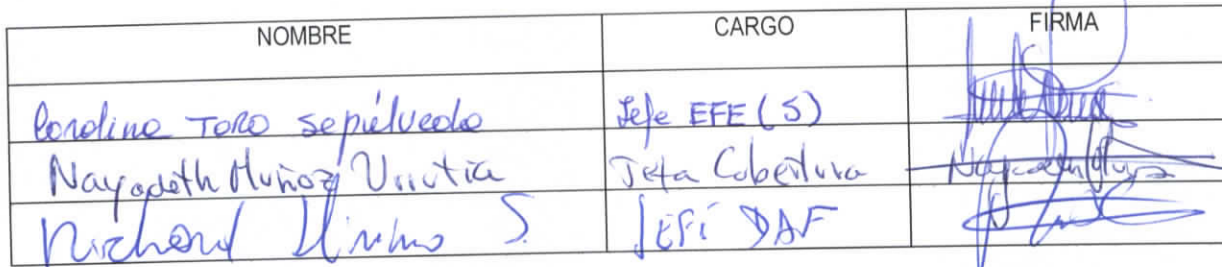 NOMBRE CARGO FIRMA
Carolina TORO Sepúlveda Jefe EFE (S)
Nayadeth Muñoz Urrutia Jefa Cobertura
Richard S. JEFE DAF